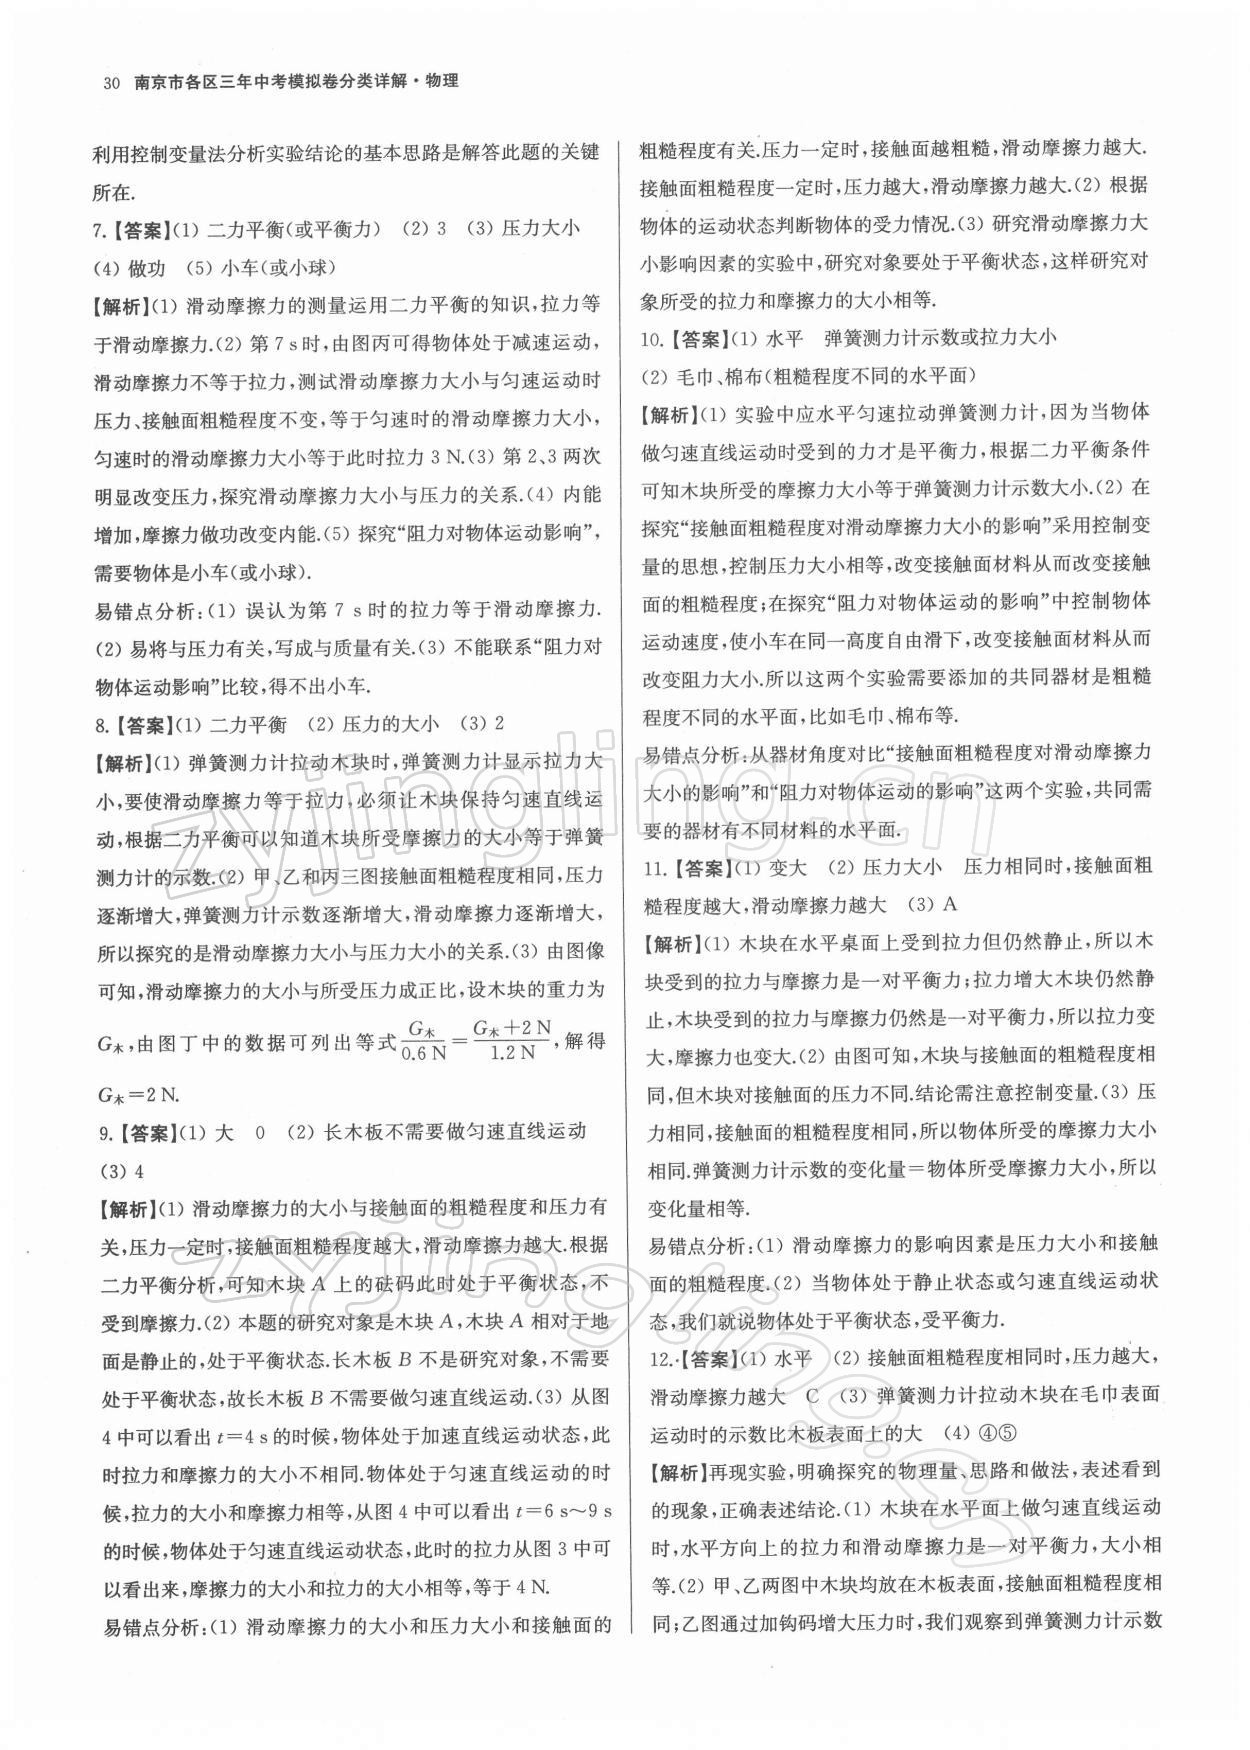 30 南京市各区三年中考模拟卷分类详解·物理
利用控制变量法分析实验结论的基本思路是解答此题的关键
所在.
7.【答案】(1) 二力平衡(或平衡力) (2) 3 (3) 压力大小
(4) 做功 (5) 小车(或小球)
【解析】(1) 滑动摩擦力的测量运用二力平衡的知识,拉力等
于滑动摩擦力.(2) 第 7 s 时,由图丙可得物体处于减速运动,
滑动摩擦力不等于拉力,测试滑动摩擦力大小与匀速运动时
压力、接触面粗糙程度不变,等于匀速时的滑动摩擦力大小,
匀速时的滑动摩擦力大小等于此时拉力 3 N.(3) 第 2、3 两次
明显改变压力,探究滑动摩擦力大小与压力的关系.(4) 内能
增加,摩擦力做功改变内能.(5) 探究“阻力对物体运动影响”,
需要物体是小车(或小球).
易错点分析:(1) 误认为第 7 s 时的拉力等于滑动摩擦力.
(2) 易将与压力有关,写成与质量有关.(3) 不能联系“阻力对
物体运动影响”比较,得不出小车.
8.【答案】(1) 二力平衡 (2) 压力的大小 (3) 2
【解析】(1) 弹簧测力计拉动木块时,弹簧测力计显示拉力大
小,要使滑动摩擦力等于拉力,必须让木块保持匀速直线运
动,根据二力平衡可以知道木块所受摩擦力的大小等于弹簧
测力计的示数.(2) 甲、乙和丙三图接触面粗糙程度相同,压力
逐渐增大,弹簧测力计示数逐渐增大,滑动摩擦力逐渐增大,
所以探究的是滑动摩擦力大小与压力大小的关系.(3) 由图像
可知,滑动摩擦力的大小与所受压力成正比,设木块的重力为
G木,由图丁中的数据可列出等式 G木/0.6 N = (G木+2 N)/1.2 N,解得
G木=2 N.
9.【答案】(1) 大 0 (2) 长木板不需要做匀速直线运动
(3) 4
【解析】(1) 滑动摩擦力的大小与接触面的粗糙程度和压力有
关,压力一定时,接触面粗糙程度越大,滑动摩擦力越大.根据
二力平衡分析,可知木块 A 上的砝码此时处于平衡状态,不
受到摩擦力.(2) 本题的研究对象是木块 A,木块 A 相对于地
面是静止的,处于平衡状态.长木板 B 不是研究对象,不需要
处于平衡状态,故长木板 B 不需要做匀速直线运动.(3) 从图
4 中可以看出 t=4 s 的时候,物体处于加速直线运动状态,此
时拉力和摩擦力的大小不相同.物体处于匀速直线运动的时
候,拉力的大小和摩擦力相等,从图 4 中可以看出 t=6 s~9 s
的时候,物体处于匀速直线运动状态,此时的拉力从图 3 中可
以看出来,摩擦力的大小和拉力的大小相等,等于 4 N.
易错点分析:(1) 滑动摩擦力的大小和压力大小和接触面的
粗糙程度有关.压力一定时,接触面越粗糙,滑动摩擦力越大.
接触面粗糙程度一定时,压力越大,滑动摩擦力越大.(2) 根据
物体的运动状态判断物体的受力情况.(3) 研究滑动摩擦力大
小影响因素的实验中,研究对象要处于平衡状态,这样研究对
象所受的拉力和摩擦力的大小相等.
10.【答案】(1) 水平 弹簧测力计示数或拉力大小
(2) 毛巾、棉布(粗糙程度不同的水平面)
【解析】(1) 实验中应水平匀速拉动弹簧测力计,因为当物体
做匀速直线运动时受到的力才是平衡力,根据二力平衡条件
可知木块所受的摩擦力大小等于弹簧测力计示数大小.(2) 在
探究“接触面粗糙程度对滑动摩擦力大小的影响”采用控制变
量的思想,控制压力大小相等,改变接触面材料从而改变接触
面的粗糙程度;在探究“阻力对物体运动的影响”中控制物体
运动速度,使小车在同一高度自由滑下,改变接触面材料从而
改变阻力大小.所以这两个实验需要添加的共同器材是粗糙
程度不同的水平面,比如毛巾、棉布等.
易错点分析:从器材角度对比“接触面粗糙程度对滑动摩擦力
大小的影响”和“阻力对物体运动的影响”这两个实验,共同需
要的器材有不同材料的水平面.
11.【答案】(1) 变大 (2) 压力大小 压力相同时,接触面粗
糙程度越大,滑动摩擦力越大 (3) A
【解析】(1) 木块在水平桌面上受到拉力但仍然静止,所以木
块受到的拉力与摩擦力是一对平衡力;拉力增大木块仍然静
止,木块受到的拉力与摩擦力仍然是一对平衡力,所以拉力变
大,摩擦力也变大.(2) 由图可知,木块与接触面的粗糙程度相
同,但木块对接触面的压力不同.结论需注意控制变量.(3) 压
力相同,接触面的粗糙程度相同,所以物体所受的摩擦力大小
相同.弹簧测力计示数的变化量=物体所受摩擦力大小,所以
变化量相等.
易错点分析:(1) 滑动摩擦力的影响因素是压力大小和接触
面的粗糙程度.(2) 当物体处于静止状态或匀速直线运动状
态,我们就说物体处于平衡状态,受平衡力.
12.【答案】(1) 水平 (2) 接触面粗糙程度相同时,压力越大,
滑动摩擦力越大 C (3) 弹簧测力计拉动木块在毛巾表面
运动时的示数比木板表面上的大 (4) ④⑤
【解析】再现实验,明确探究的物理量、思路和做法,表述看到
的现象,正确表述结论.(1) 木块在水平面上做匀速直线运动
时,水平方向上的拉力和滑动摩擦力是一对平衡力,大小相
等.(2) 甲、乙两图中木块均放在木板表面,接触面粗糙程度相
同;乙图通过加钩码增大压力时,我们观察到弹簧测力计示数
zyjingling.cn
zyjingling.cn